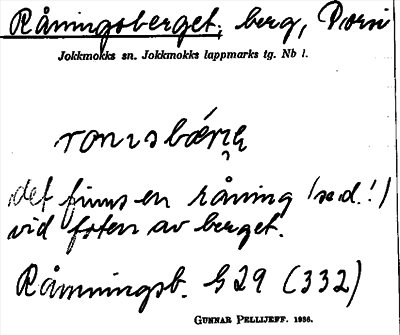 Råningsberget, berg, Porsi
Jokkmokks sn. Jokkmokks lappmarks tg. Nb l.
det finns en råning (se d.!)
vid foten av berget.
Råmningsb. G 29 (332)
GUNNAR PELLIJEFF. 1936.